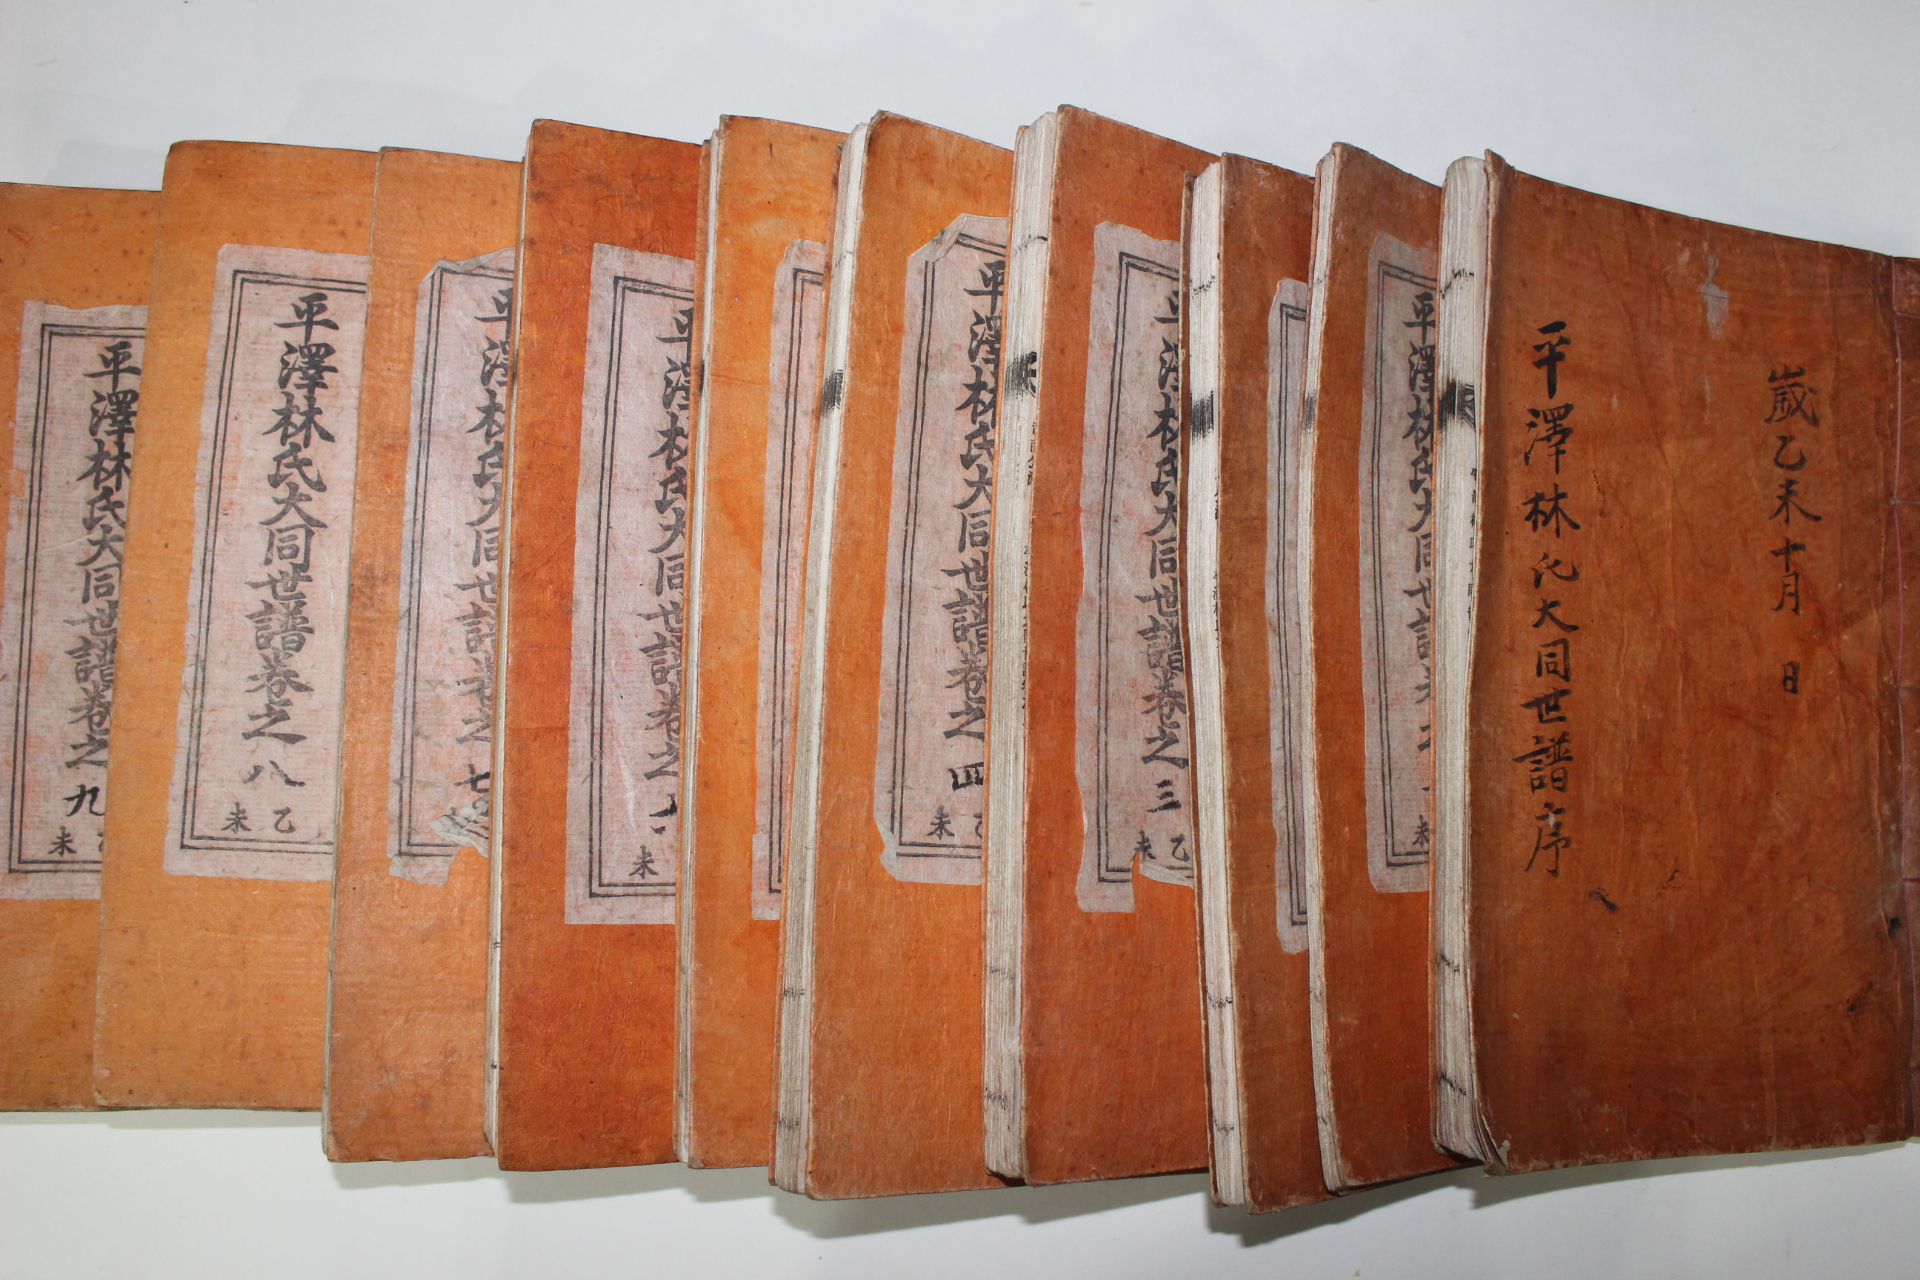 歲乙未十月 日
平澤林氏大同世譜序
平澤林氏大同世譜卷之
未
平澤林氏大同世譜卷之三
乙未
平澤林氏大同世譜卷之四
乙未
平澤林氏大同世譜卷之六
未
平澤林氏大同世譜卷之七
平澤林氏大同世譜卷之八
乙未
平澤林氏大同世譜卷之九
乙未